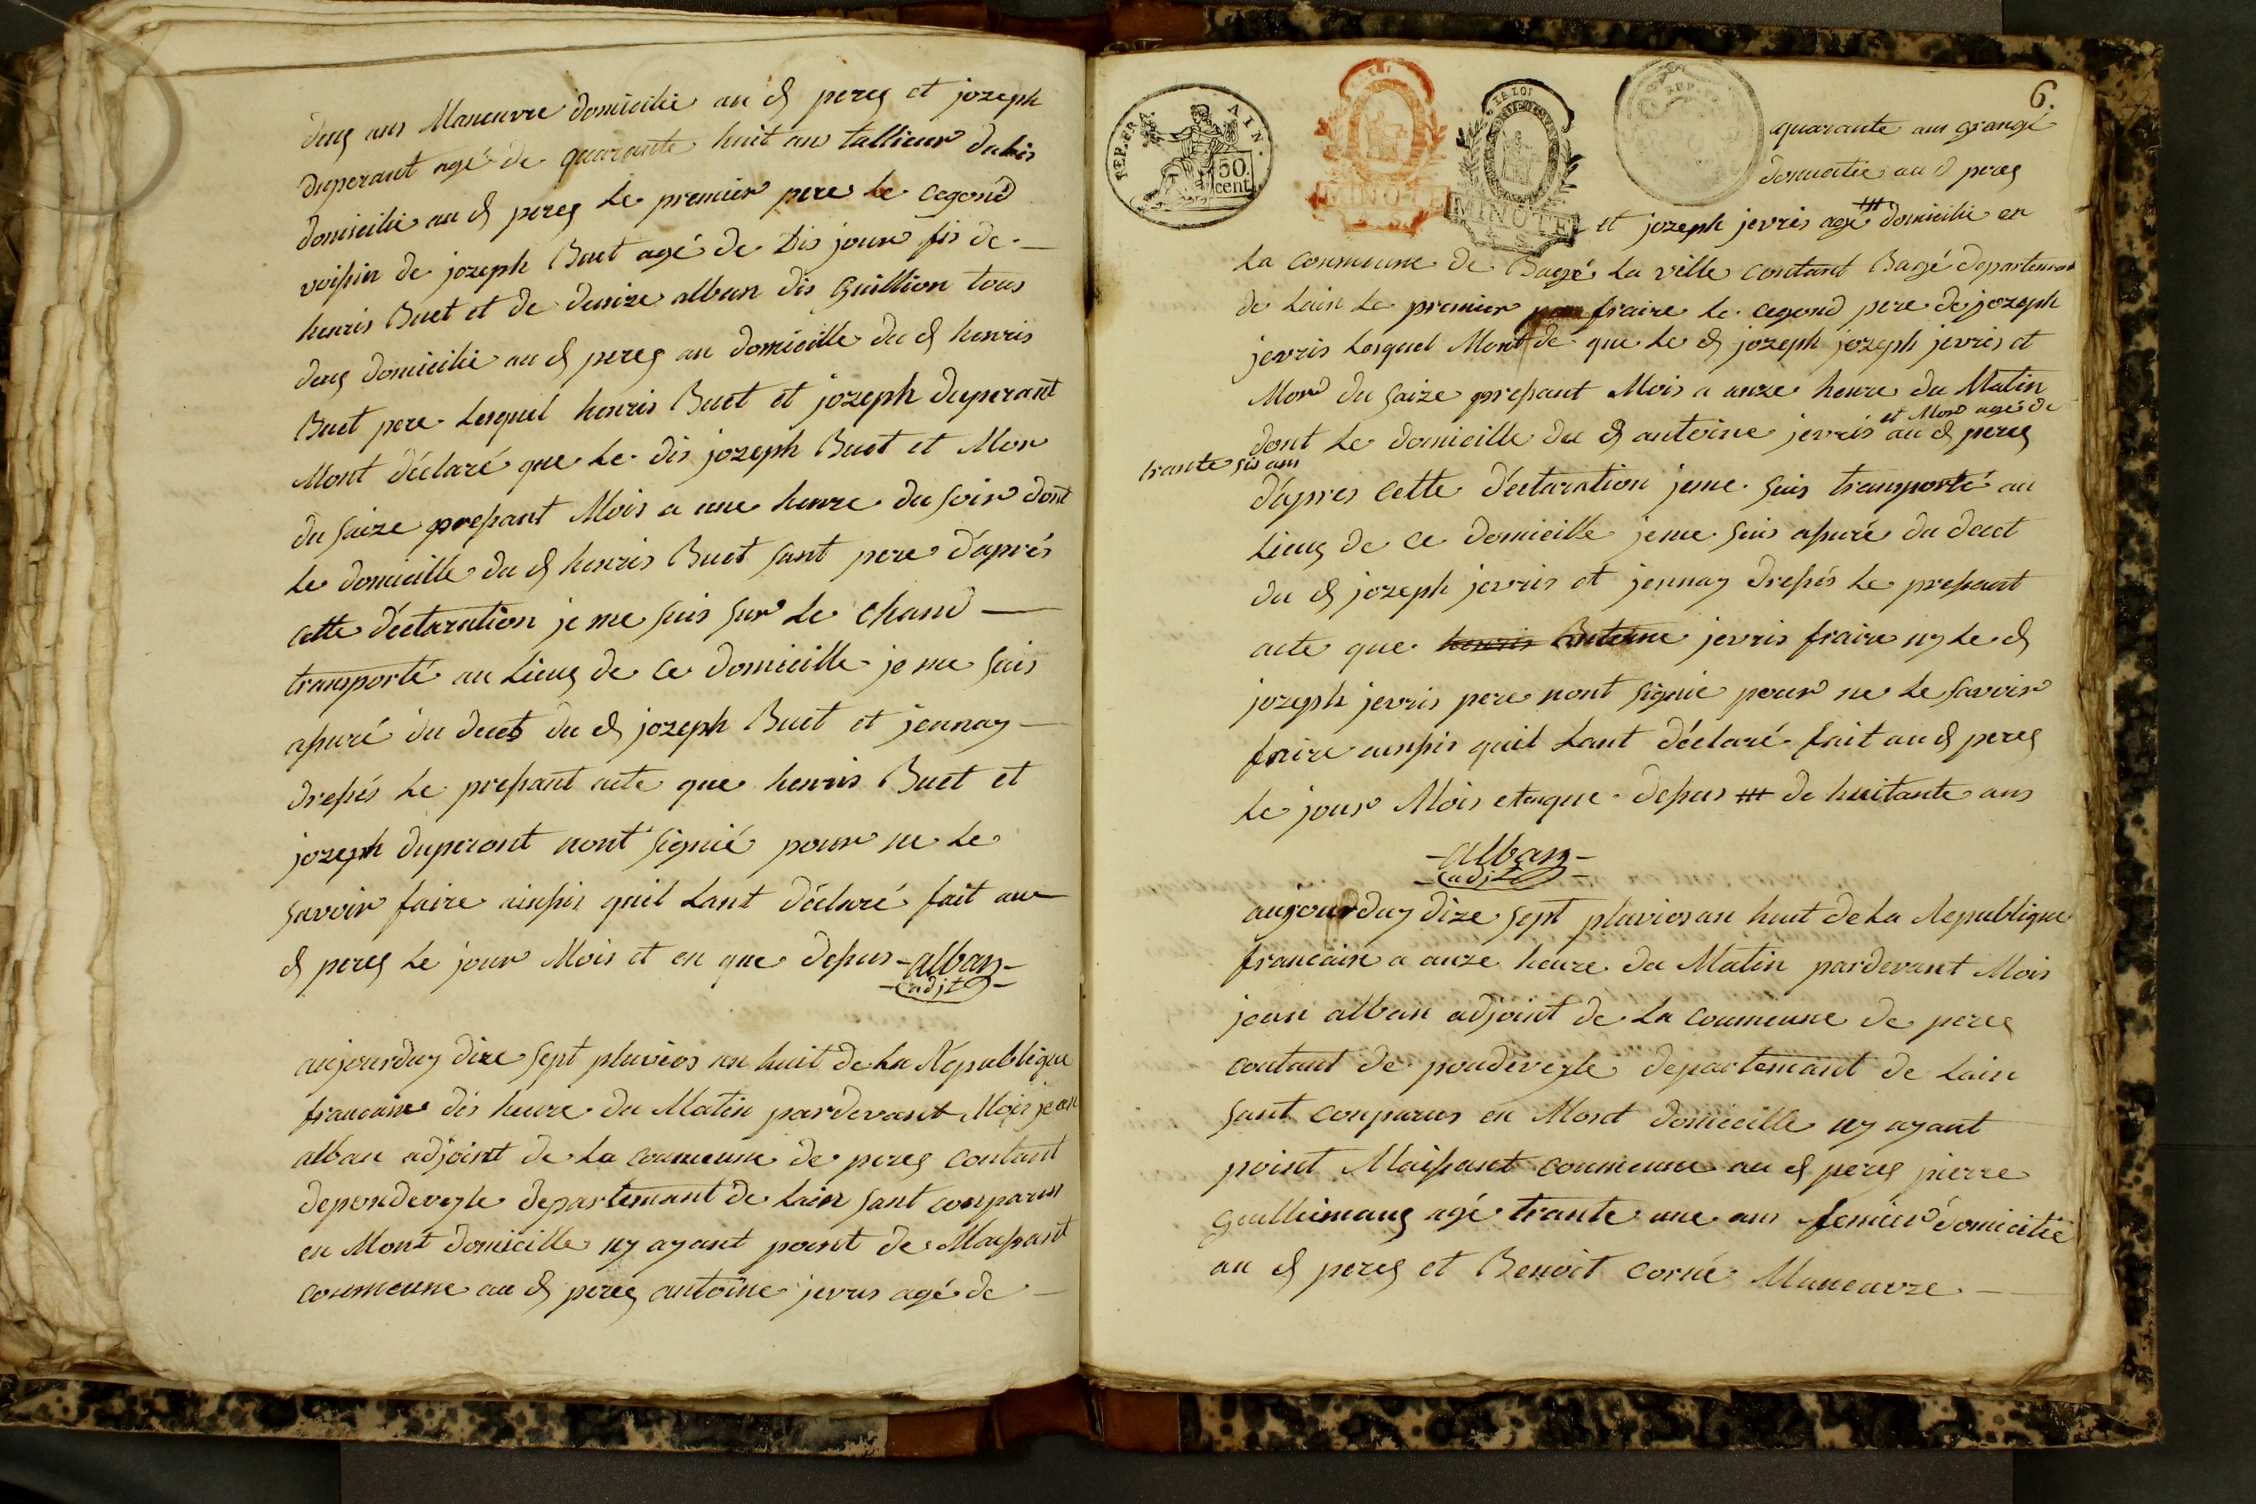 deus ans Maneuvre domicilié au d peres et jozeph
duperant agé de quarante huit an tallieur dabis
domicilié au d peres le premier pere le cegond
voissin de jozeph Buet agé de dis jour fis de
henris Buet et de denize alban dis Guillion tous
deus domicilié au d peres au domicille du d henris
Buet pere lesquel henris Buet et jozeph duperant
Mont déclaré que le dis jozeph Buet et Mor
du saize pressant Mois a une heure du soir dont
le domicille du d henris Buet sant pere d'aprés
cette déclaration je me suis sur le chand
transporté au lieus de ce domicille je me suis
assuré du deces du d jozeph Buet et jennay
dressés le pressant acte que henris Buet et
jozeph duperant nont signié pour ne le
savoir faire ainssis quil lant déclaré fait au
d peres le jour Mois et en que dessus - alban -
- adjt -
aujourduy dize sept pluvios an huit de la République
francaire dis heure du Matin pardevant Mois jean
alban adjoint de la coumeune de peres contant
depondeveyle departemant de lain sant comparus
en Mont domicille ny ayant point de Maissant
coumeune au d peres antoine jevris agé de
6.
quarante ans grangé
domicilié au d peres
et jozeph jevris agé ttt domicilié en
la coumeune de Bagé la ville contant Bagé departemant
de lain le premier fraire le cegond pere de jozeph
jevris lesquel Mont de que le d jozeph jozeph jevris et
Mor du saize pressant Mois a anze heure du Matin
et Mor agés de
dont le domicille du d antoine jevris au d peres
trante sis ans
d'apres cette déclaration jeme suis transporté au
lieus de ce domicille jeme suis assuré du decet
du d jozeph jevris et jennay dressés le pressant
acte que henris Antoine jevris fraire ny le d
jozeph jevris pere nont signié pour ne le savoir
faire ainssis quil lant déclaré fait au d peres
le jour Mois etanque dessus ttt de huitante ans
- alban -
- adjt -
aujourduy dize sept pluvios an huit de la Republique
francaire a anze heure du Matin pardevant Mois
jean alban adjoint de la coumeune de peres
contant de pondeveyle departemant de lain
sant comparus en Mont domicille ny ayant
point Maissant coumeune au d peres pierre
Guillumaus agé trante une ans femier domicilié
au d peres et Benoit corné Maneuvre
REP. FRA. AIN.
50 cent.
LA LOI
MINUTE
LA LOI
MINUTE